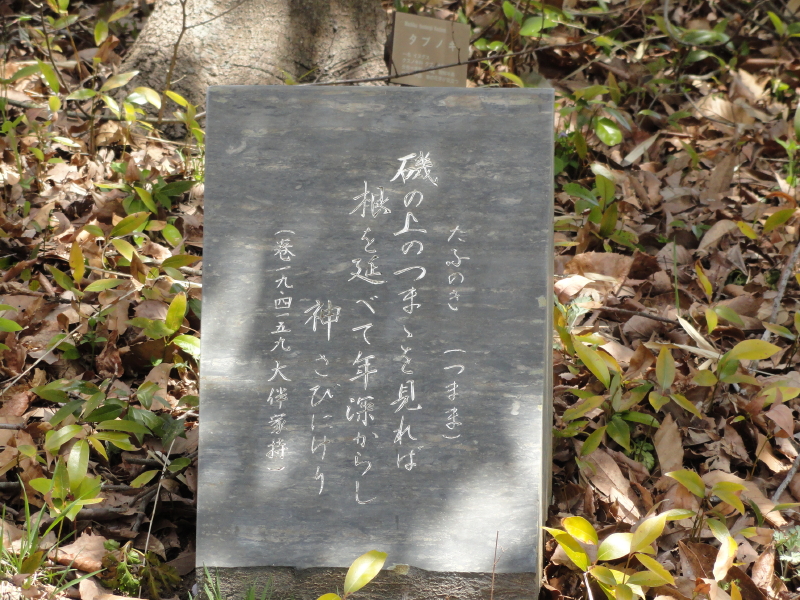 タブノキ
たぶのき （つまま）
磯の上のつまゝを見れば
根を延べて年深からし
神さびにけり
（巻一九 四一五九 大伴家持）